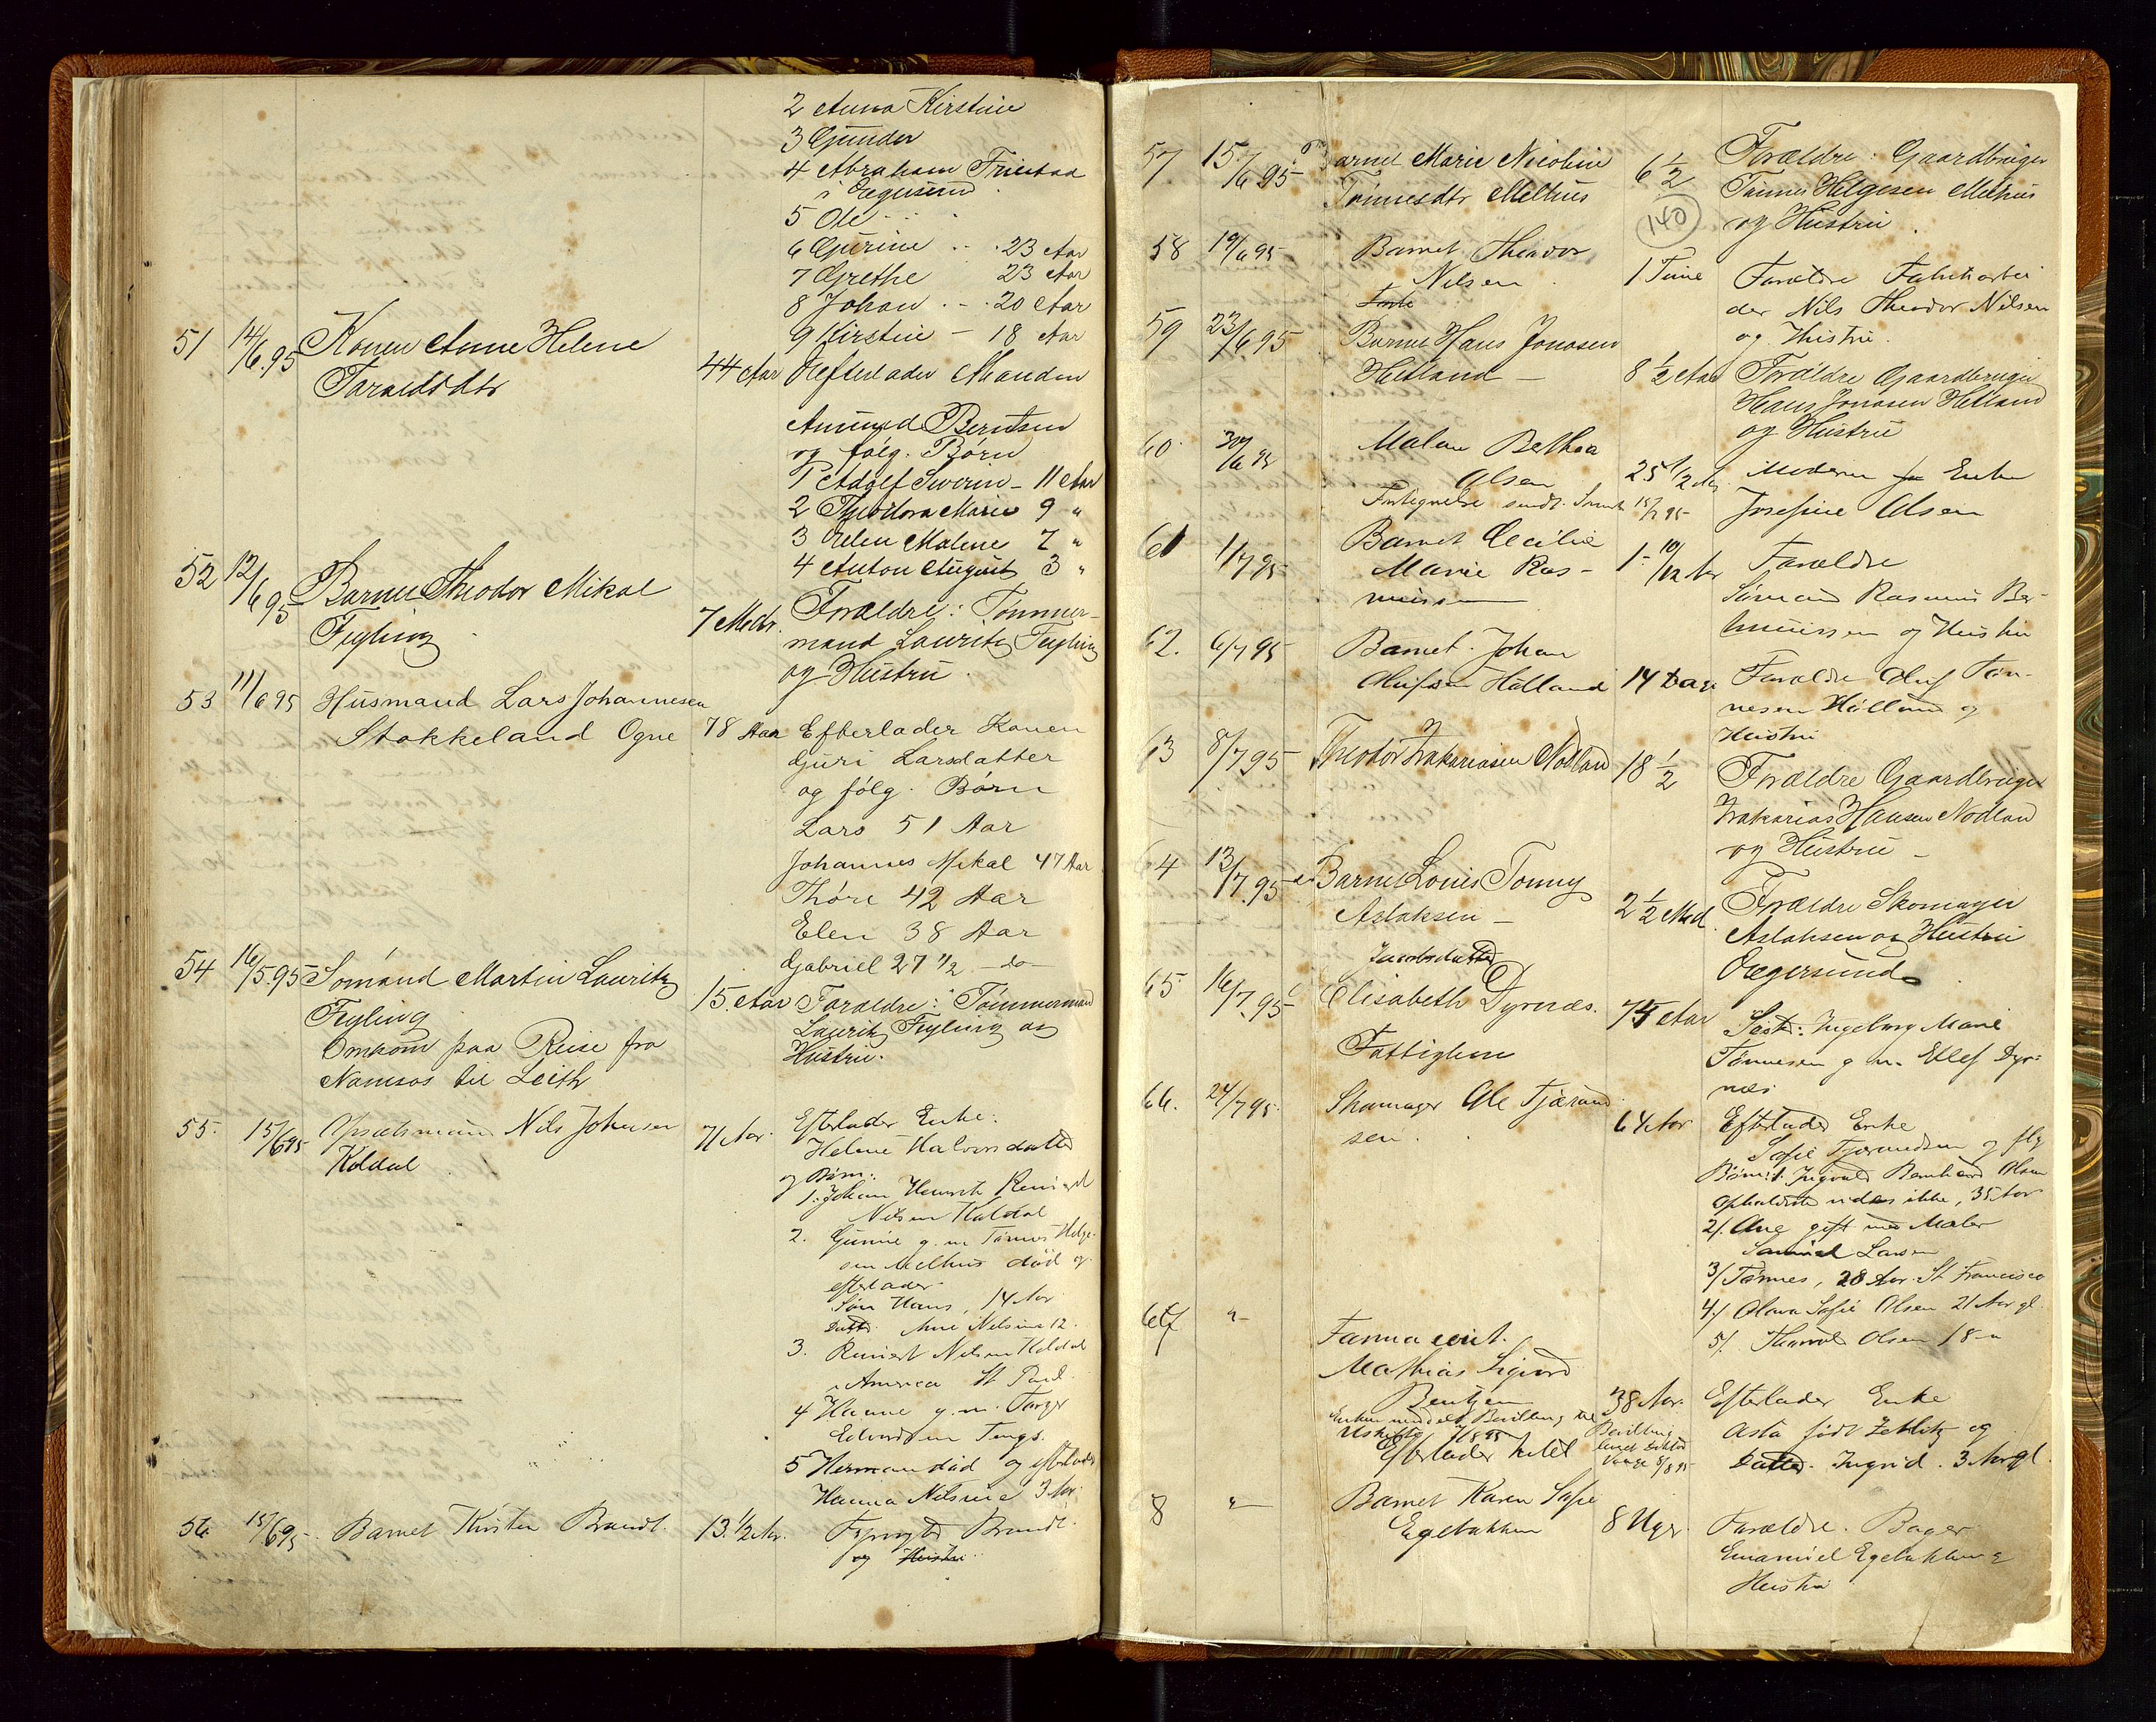 2 Anna Kirstine
3 Gunder
4 Abraham Friestad
i Egersund
5 Ole
6 Gurine 23 Aar
7 Grethe 23 Aar
8 Johan 20 Aar
9 Kirstine - 18 Aar
51 14/6.95 Konen Anne Helene 44 Aar Efterlader Manden
Taraldsdtr
Amund Berntsen
og følg. Børn
1 Adolf Severin - 11 Aar
2 Theodora Marie 9 "
3 Elen Malene 7 "
4 Anton August 3 "
52 12/6 95 Barnet Theodor Mikal 7 Mdr. Forældre: Tømmer-
Feyling mand Lauritz Feyling
og Hustru.
53 11/6 95 Husmand Lars Johannesen
Stokkeland Ogne 78 Aar Efterlader Konen
Guri Larsdatter
og følg. Børn
Lars 51 Aar
Johannes Mikal 47 Aar
Thore 42 Aar
Elen 38 Aar
Gabriel 27 1/2 - do -
54 16/5.95 Sømand Martin Lauritz 15 Aar Forældre: Tømmermand
Feyling Lauritz Feyling og
Omkom paa Reise fra Hustru.
Namsos til Leith
55. 15/6 95 Opsidsmand Nils Johnsen 71 Aar. Efterlader Enke:
Koldal Helene Halvorsdatter
og Børn:
1. Johan Henrik Reinert
Nilsen Koldal
2. Gunine g. m. Tønnes Helge-
sen Melhus død og
efterlader
Søn Hans, 14 Aar
Datter Ane Nelsine 12.
3. Reinert Nilsen Koldal
i America St Paul.
4 Hanne g. m. Torger
Edvardsen Tengs.
5 Herman død og efterlader
Hanna Nilsine 3 Aar.
56 15/6 95. Barnet Kirsten Brandt. 13 1/2 Aar. Brandt.
og Hustru.
57 15/6 95 Barnet Marie Nicoline 6 1/2 Forældre: Gaardbruger
Tønnesdtr Melhus Tønnes Helgesen Melhus
140 og Hustru.
58 19/6 95 Barnet Theodor 1 Time Forældre Fabrikarbei
Nilsen der Nils Theodor Nilsen
og Hustru.
59 23/6 95 Barnet Hans Jonasen
Hetland - 8 1/2 Aar Forældre Gaardbruger
Hans Jonasen Hetland
og Hustru
60. 30/6 95 Malene Berthea
Olsen 25 1/2 Aar. Moderen Enke
Fortegnelse sendt 15/7 95 Josefine Olsen
61 1/7 95 Barnet Cecilie
Marie Ras- 1 10/12 Aar Forældre
mussen Sømand Rasmus
og Hustru
62. 6/7 95 Barnet Johan
Olufsen Hølland 14 Dage Forældre Oluf Tøn-
nesen Hølland og
Hustru
63 8/7.95 Theodor Zakariasen Nodland 18 1/2 Forældre Gaardbruger
Zakarias Hansen Nodland
og Hustru -
64 13/7.95 Barnet Louis Tonny
Aslaksen - 2 1/2 Mnd. Forældre Skomager
Aslaksen og Hustru
Egersund
Jacobsdatter
65 16/7.95 Elisabeth Dyrnæs. 74 Aar Søst: Ingeborg Marie
Fattiglem Tønnesen g. m. Ellef Dyr-
næs
66. 24/7 95. Skomager Ole Tjærand- 64 Aar Efterlader Enke
sen. Sofie Tjerandsen og flg
Børn: 1. Ingvald Bernhard Olsen
Opholdsted vides ikke, 35 Aar
2/. Ane gift med Maler
Samuel Larsen
3/ Tønnes, 28 Aar. St. Francisco
4/ Olava Sofie Olsen 21 Aar gl.
5/. Thorvald Olsen 18 -"
67 "- Farmaceut.
Mathias Sigurd
Bentzen 38 Aar. Efterlader Enke
Enken meddelt Bevilling til Asta født Zetlitz og
Uskiftet Datter Ingrid. 3 Aar gl.
Efterlader
68 "- Barnet Karen Sofie
Egebakken 8 Uger. Forældre. Bager
Emanuel Egebakken &
Hustru